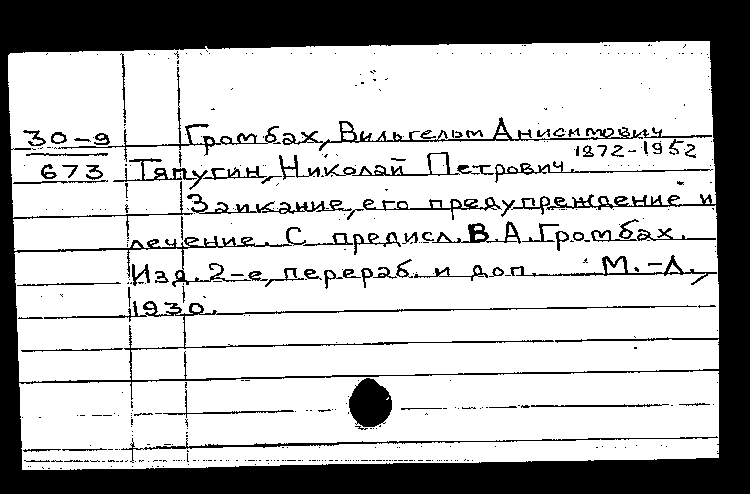 30-9 Громбах, Вильгельм Анисимович
1872-1952
673 Тяпугин, Николай Петрович.
Заикание, его предупреждение и
лечение. С предисл. В.А. Громбах.
Изд. 2-е, перераб. и доп. М.-Л.,
1930.